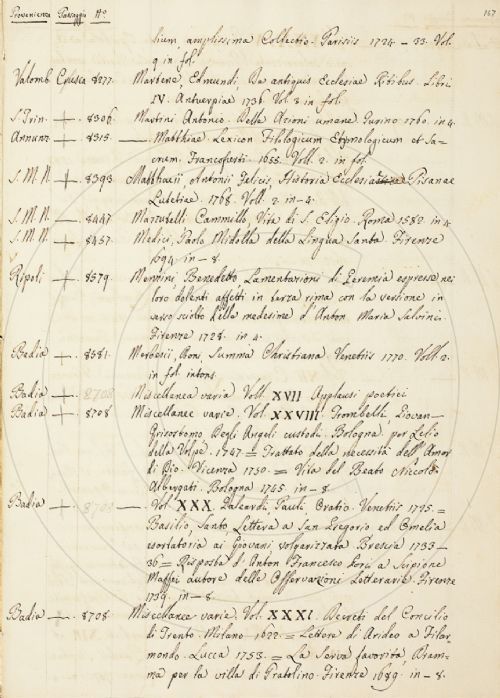 Provenienza Passaggio No. 157
lium, amplissima Collectio. Parisiis 1724 – 33. Vol.
9 in fol.
Valomb. Crusca 8277. Martene, Edmundi. De antiquis Ecclesiae Ritibus. Libri
IV. Antverpiae 1736. Vol. 3. in fol.
S. Trin. + 8306. Martini Antonio. Della Azioni umane. Torino 1760. in 4.
Annunz. + 8315. —. Matthiae. Lexicon Filologicum Etymologicum et Sa-
crum. Francofurti. 1655. Voll. 2. in fol.
S. M. N. + 8393 Matthaeii, Antonii Felicis, Historia Ecclesiae Pisanae
Lucae. 1768. Voll. 2. in – 4.
S. M. N. — 8447 Mazzutelli Cammillo, Vita di S. Eligio. Roma 1582. in 4.
S. M. N. + 8457. Medici, Paolo, Midolla della Lingua Santa. Firenze
1694. in – 8.
Ripoli + 8579. Menzini, Benedetto, Lamentazioni di Geremia espresse nei
loro dolenti affetti in terza rima con la versione in
verso sciolto della medesime d'Anton Maria Salvini.
Firenze 1728. in 4.
Badia + 8581. Merbesii, Boni, Summa Christiana. Venetiis 1770. Voll. 2.
in fol. intons.
Badia + 8708 Miscellanea varia Voll. XVII Applausi poetici
Badia + 8708 Miscellanee varie. Vol. XXVIII. Trombelli, Giovan-
Grisostomo. Degli Angeli custodi. Bologna, per Lelio
della Volpe. 1747. = Trattato della necessità dell'Amor
di Dio. Vicenza 1750. = Vita del Beato Niccolò
Albergati. Bologna 1745. in – 8.
Badia + 8708 —. Vol. XXX. Paleardi, Pauli, Oratio. Venetiis 1795. =
Basilio, Santo Lettera a San Gregorio ed Omelia
esortatoria ai Giovani volgarizzata Brescia 1733 –
36 = Risposta d'Anton Francesco Gori a Scipione
Maffei autore delle Osservazioni Letterarie. Firenze
1739. in – 8.
Badia + 8708 Miscellanea varia. Vol. XXXI. Decreti del Concilio
di Trento. Milano 1672. = Lettere di Arideo a Filar
mondo. Lucca 1753. = La Serva favorita, Dram-
ma per la villa di Pratolino. Firenze 1689. in – 8.